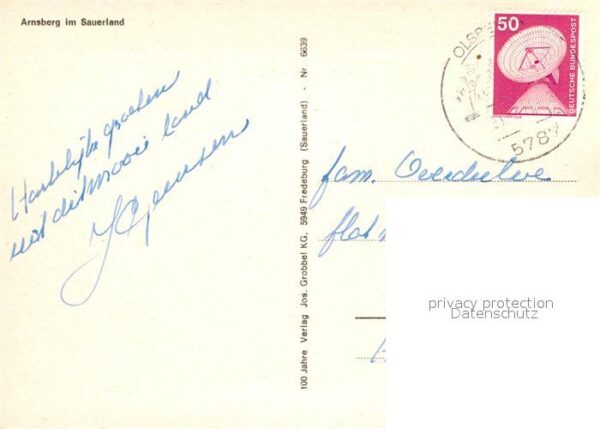 Arnsberg im Sauerland
Hartelijke groeten
uit dit mooie land
100 Jahre Verlag Jos. Grobbel KG, 5949 Fredeburg (Sauerland) - Nr 6639
50
DEUTSCHE BUNDESPOST
OLSB
5787
fam.
flat
privacy protection
Datenschutz